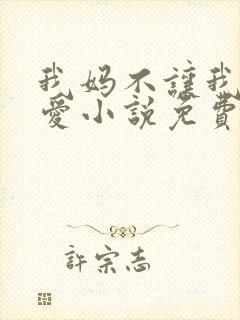 我妈不讓我
愛小說免費
許宗志